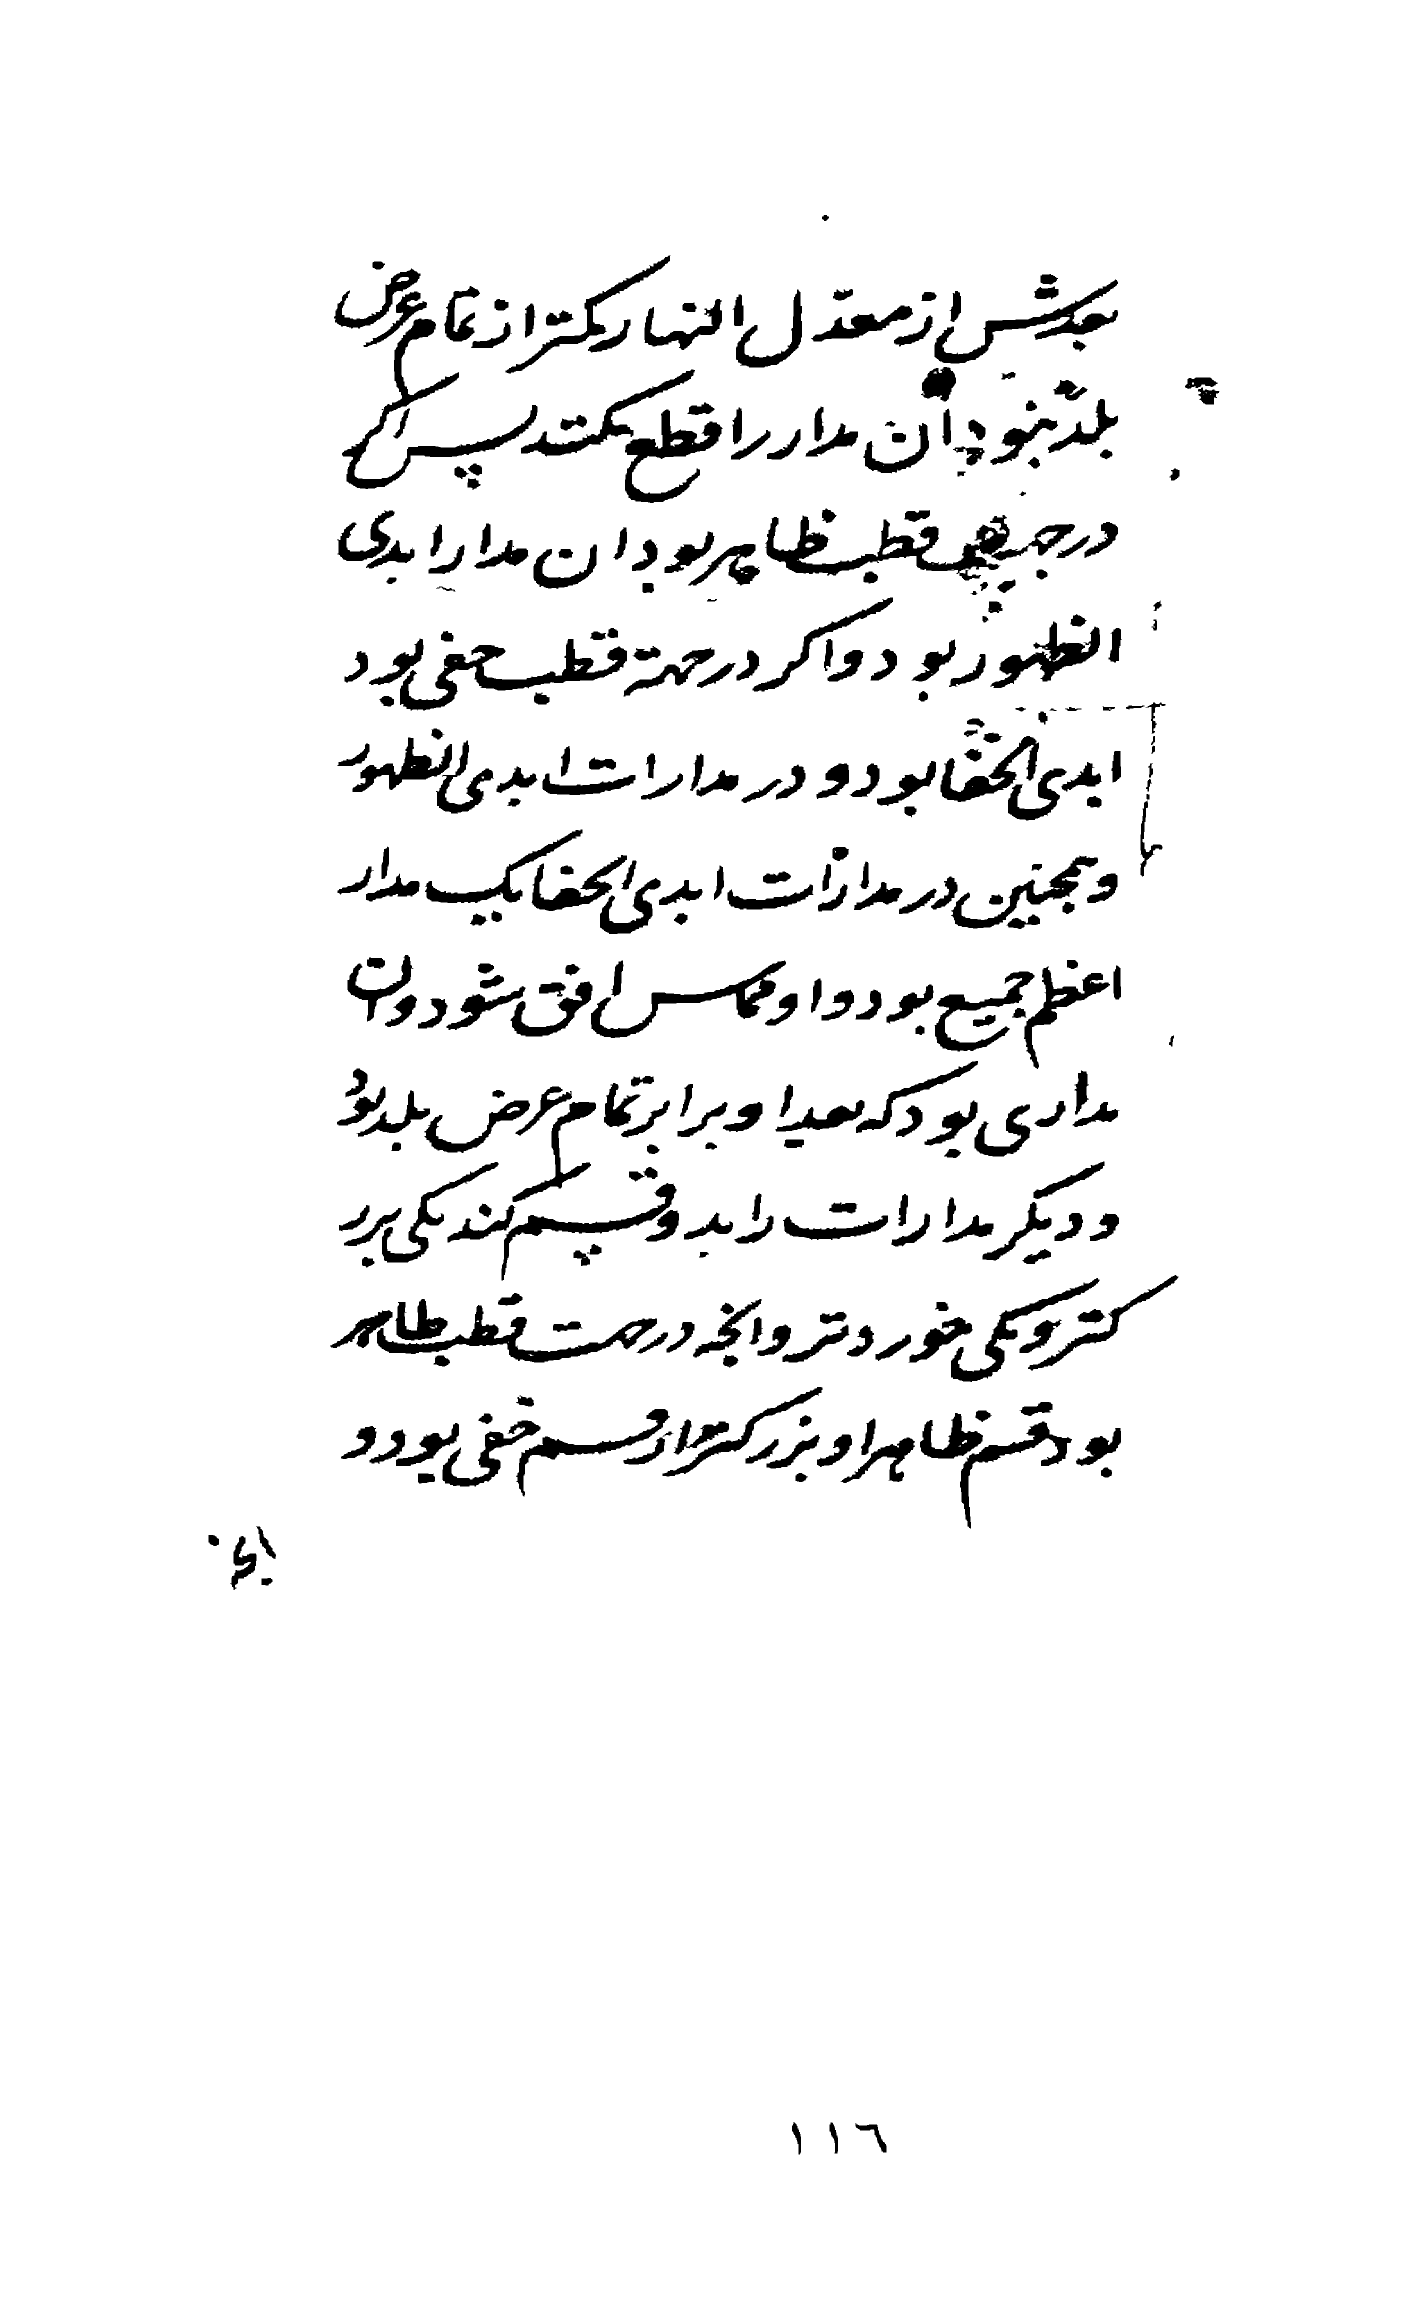 بعدش از معدّل النهار کمتر از تمام عرض
بلد نبود آن مدار را قطع نکند پس اکر
در جهت قطب ظاهر بود ان مدار ابدی
الظهور بود و اکر در جهة قطب خفی بود
ابدی الخفا بود و در مدارات ابدی الظهور
و همچنین در مدارات ابدی الخفا یک مدار
اعظم جمیع بود و او مماس افق شود و ان
مداری بود که بعد او برابر تمام عرض بلد بود
و دیکر مدارات را بدو قسم کند یکی بزر
کتر و یکی خوردتر و انچه در جهت قطب ظاهر
بود قسم ظاهر او بزرکتر از قسم خفی بود و
انچه
١١٦